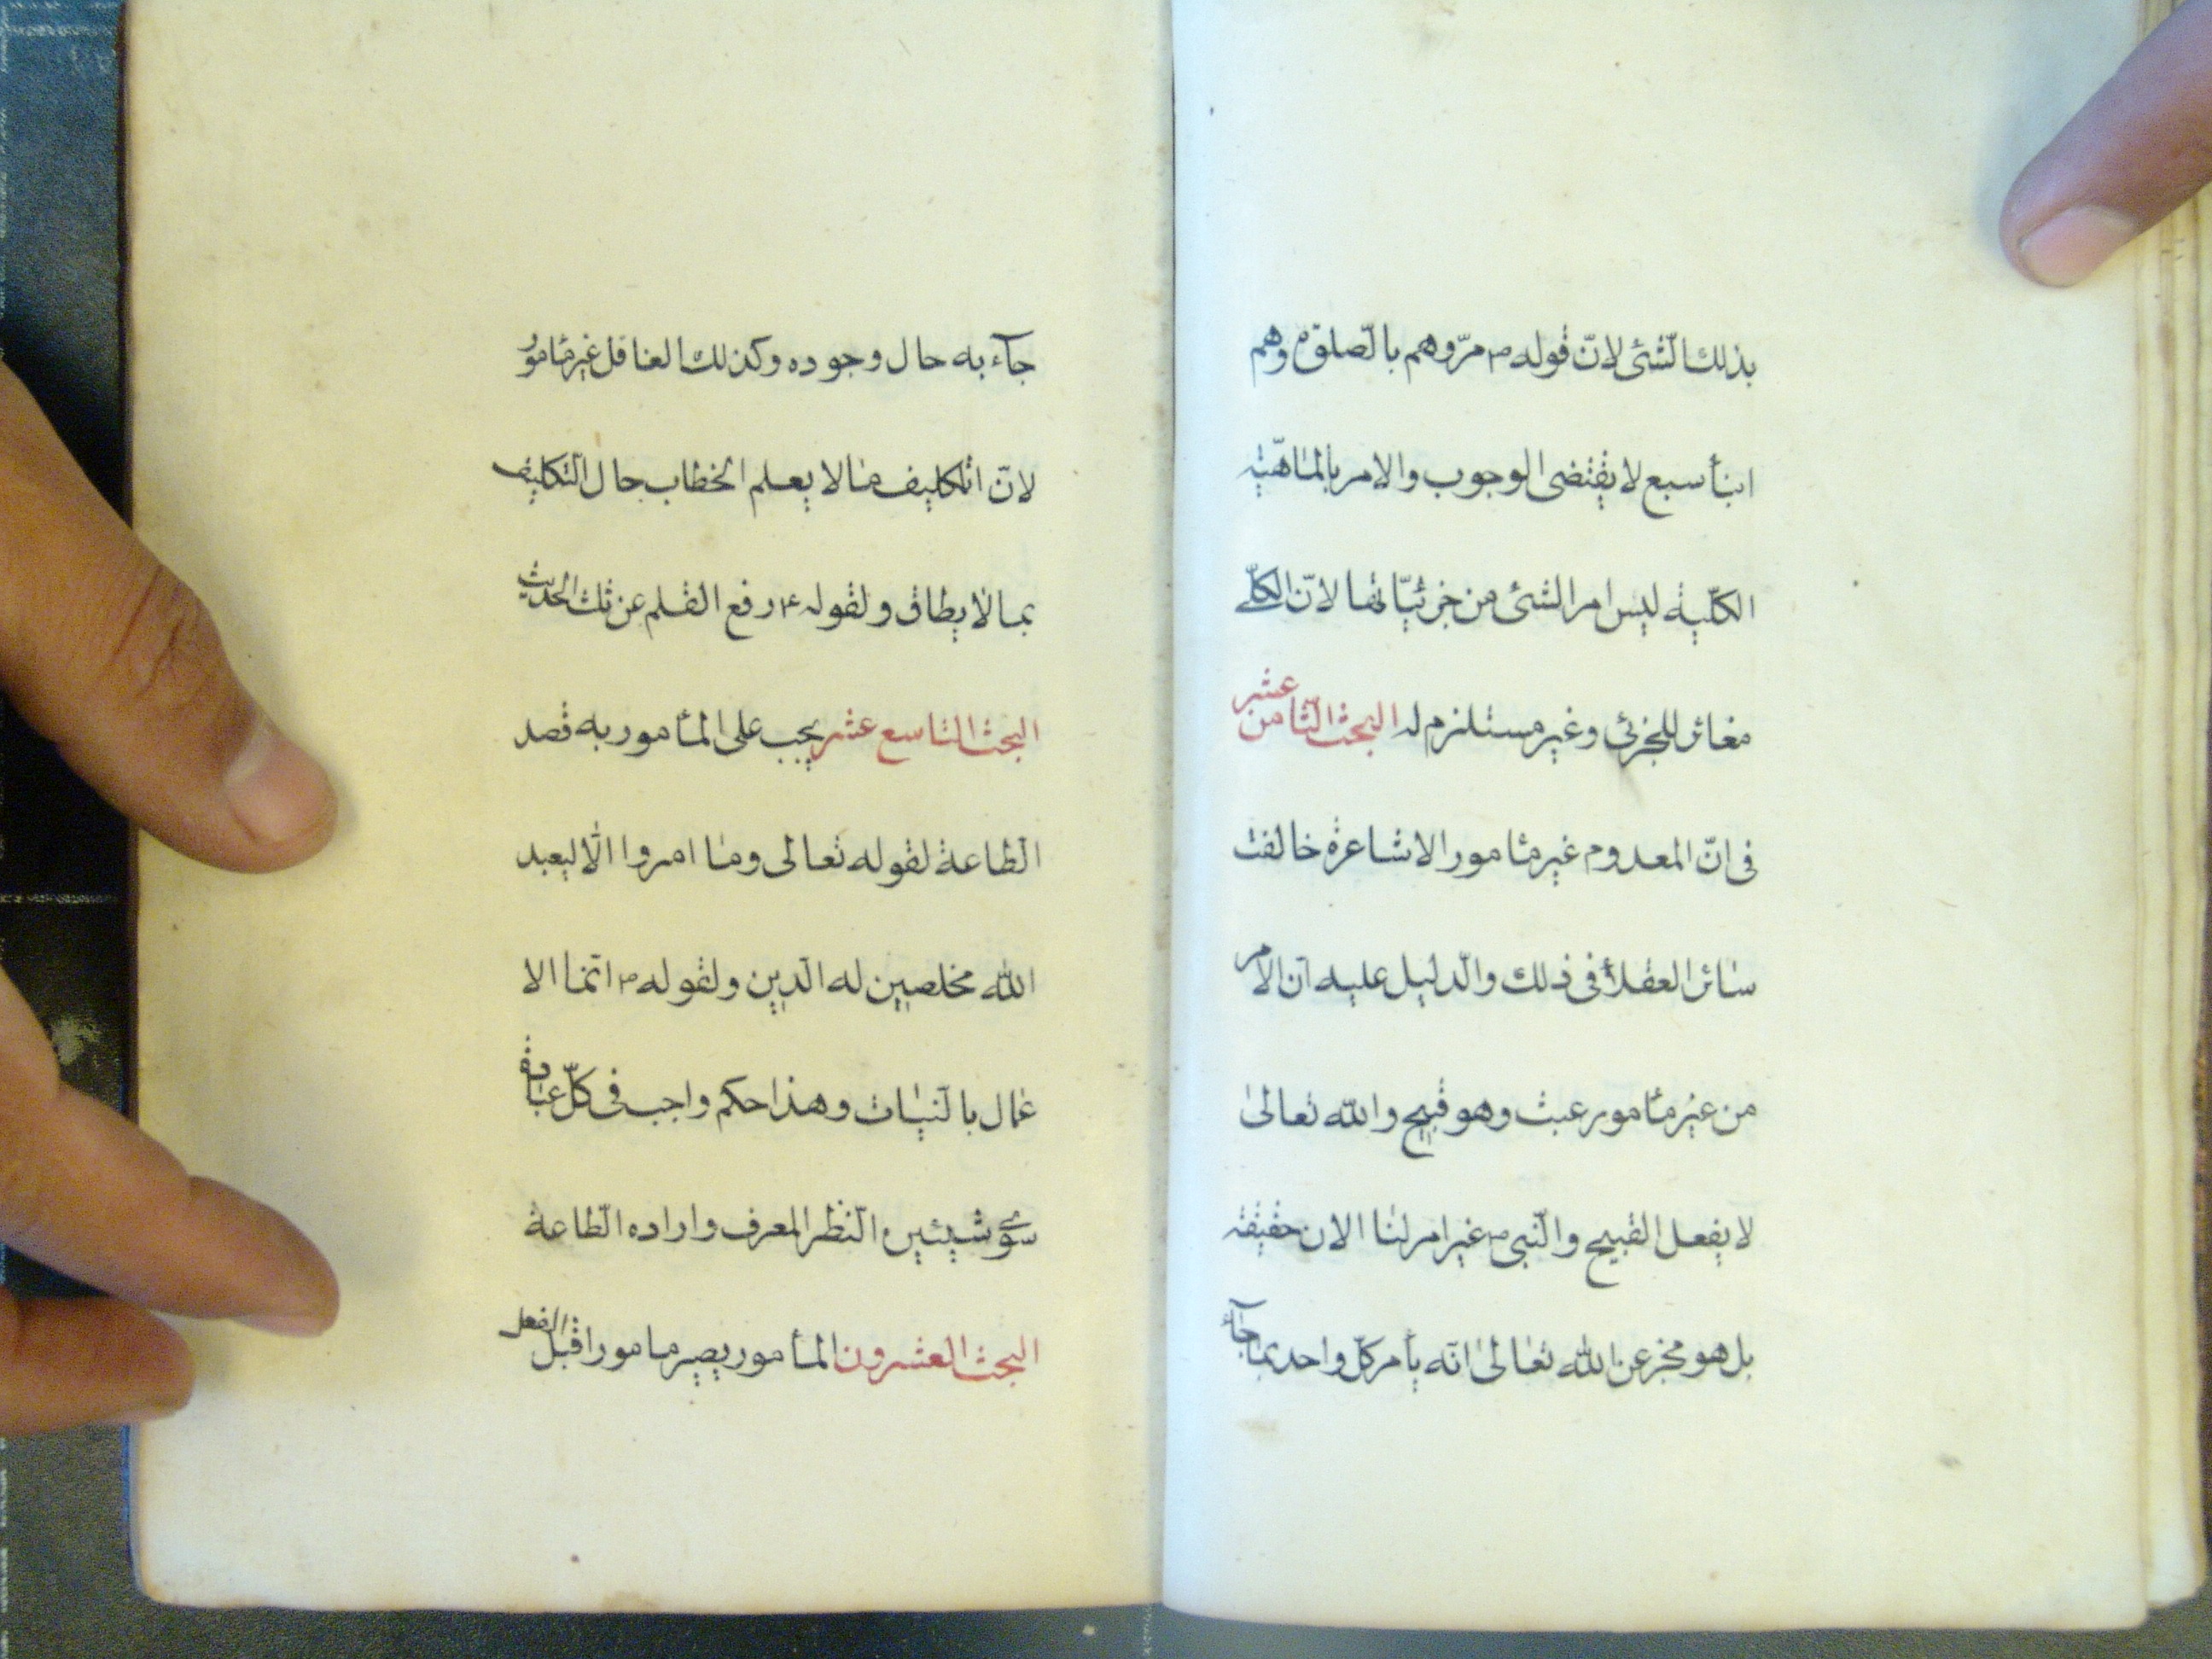 بذلك الشئ لانّ قوله ص مرّوهم بالصلوة وهم
ابنأ سبع لا يقتضى الوجوب والامر بالماهيّة
الكلّية ليس امر الشئ من جزئيّاتها لانّ الكلّے
مغائر للجزئي وغير مستلزم له البحث الثّامن عشر
فى انّ المعدوم غير مأمور الاشاعرة خالفت
سائر العقلأ فى ذلك والدّليل عليه ان الامر
من غير مأمور عبث وهو قبيح والله تعالىٰ
لا يفعل القبيح والنّبى ص غير امر لنا الان حقيقة
بل هو مخبر عن الله تعالىٰ انّه يأمر كلّ واحد بما جآء
جآء به حال وجوده وكذلك الغافل غير مأمور
لانّ التكليف مالا يعلم الخطاب حال التكليف
بما لا يطاق ولقوله ع رفع القلم عن ثلث الحديث
البحث التاسع عشر يجب على المأمور به قصد
الطّاعة لقوله تعالى وما امروا الّا ليعبد
الله مخلصين له الدّين ولقوله ص انّما الا
عمال بالنّيات وهذا حكم واجب فى كلّ عبادة
سوى شيئين النّظر المعرف واراده الطّاعة
البحث العشرون المأمور يصير مامورا قبل الفعل